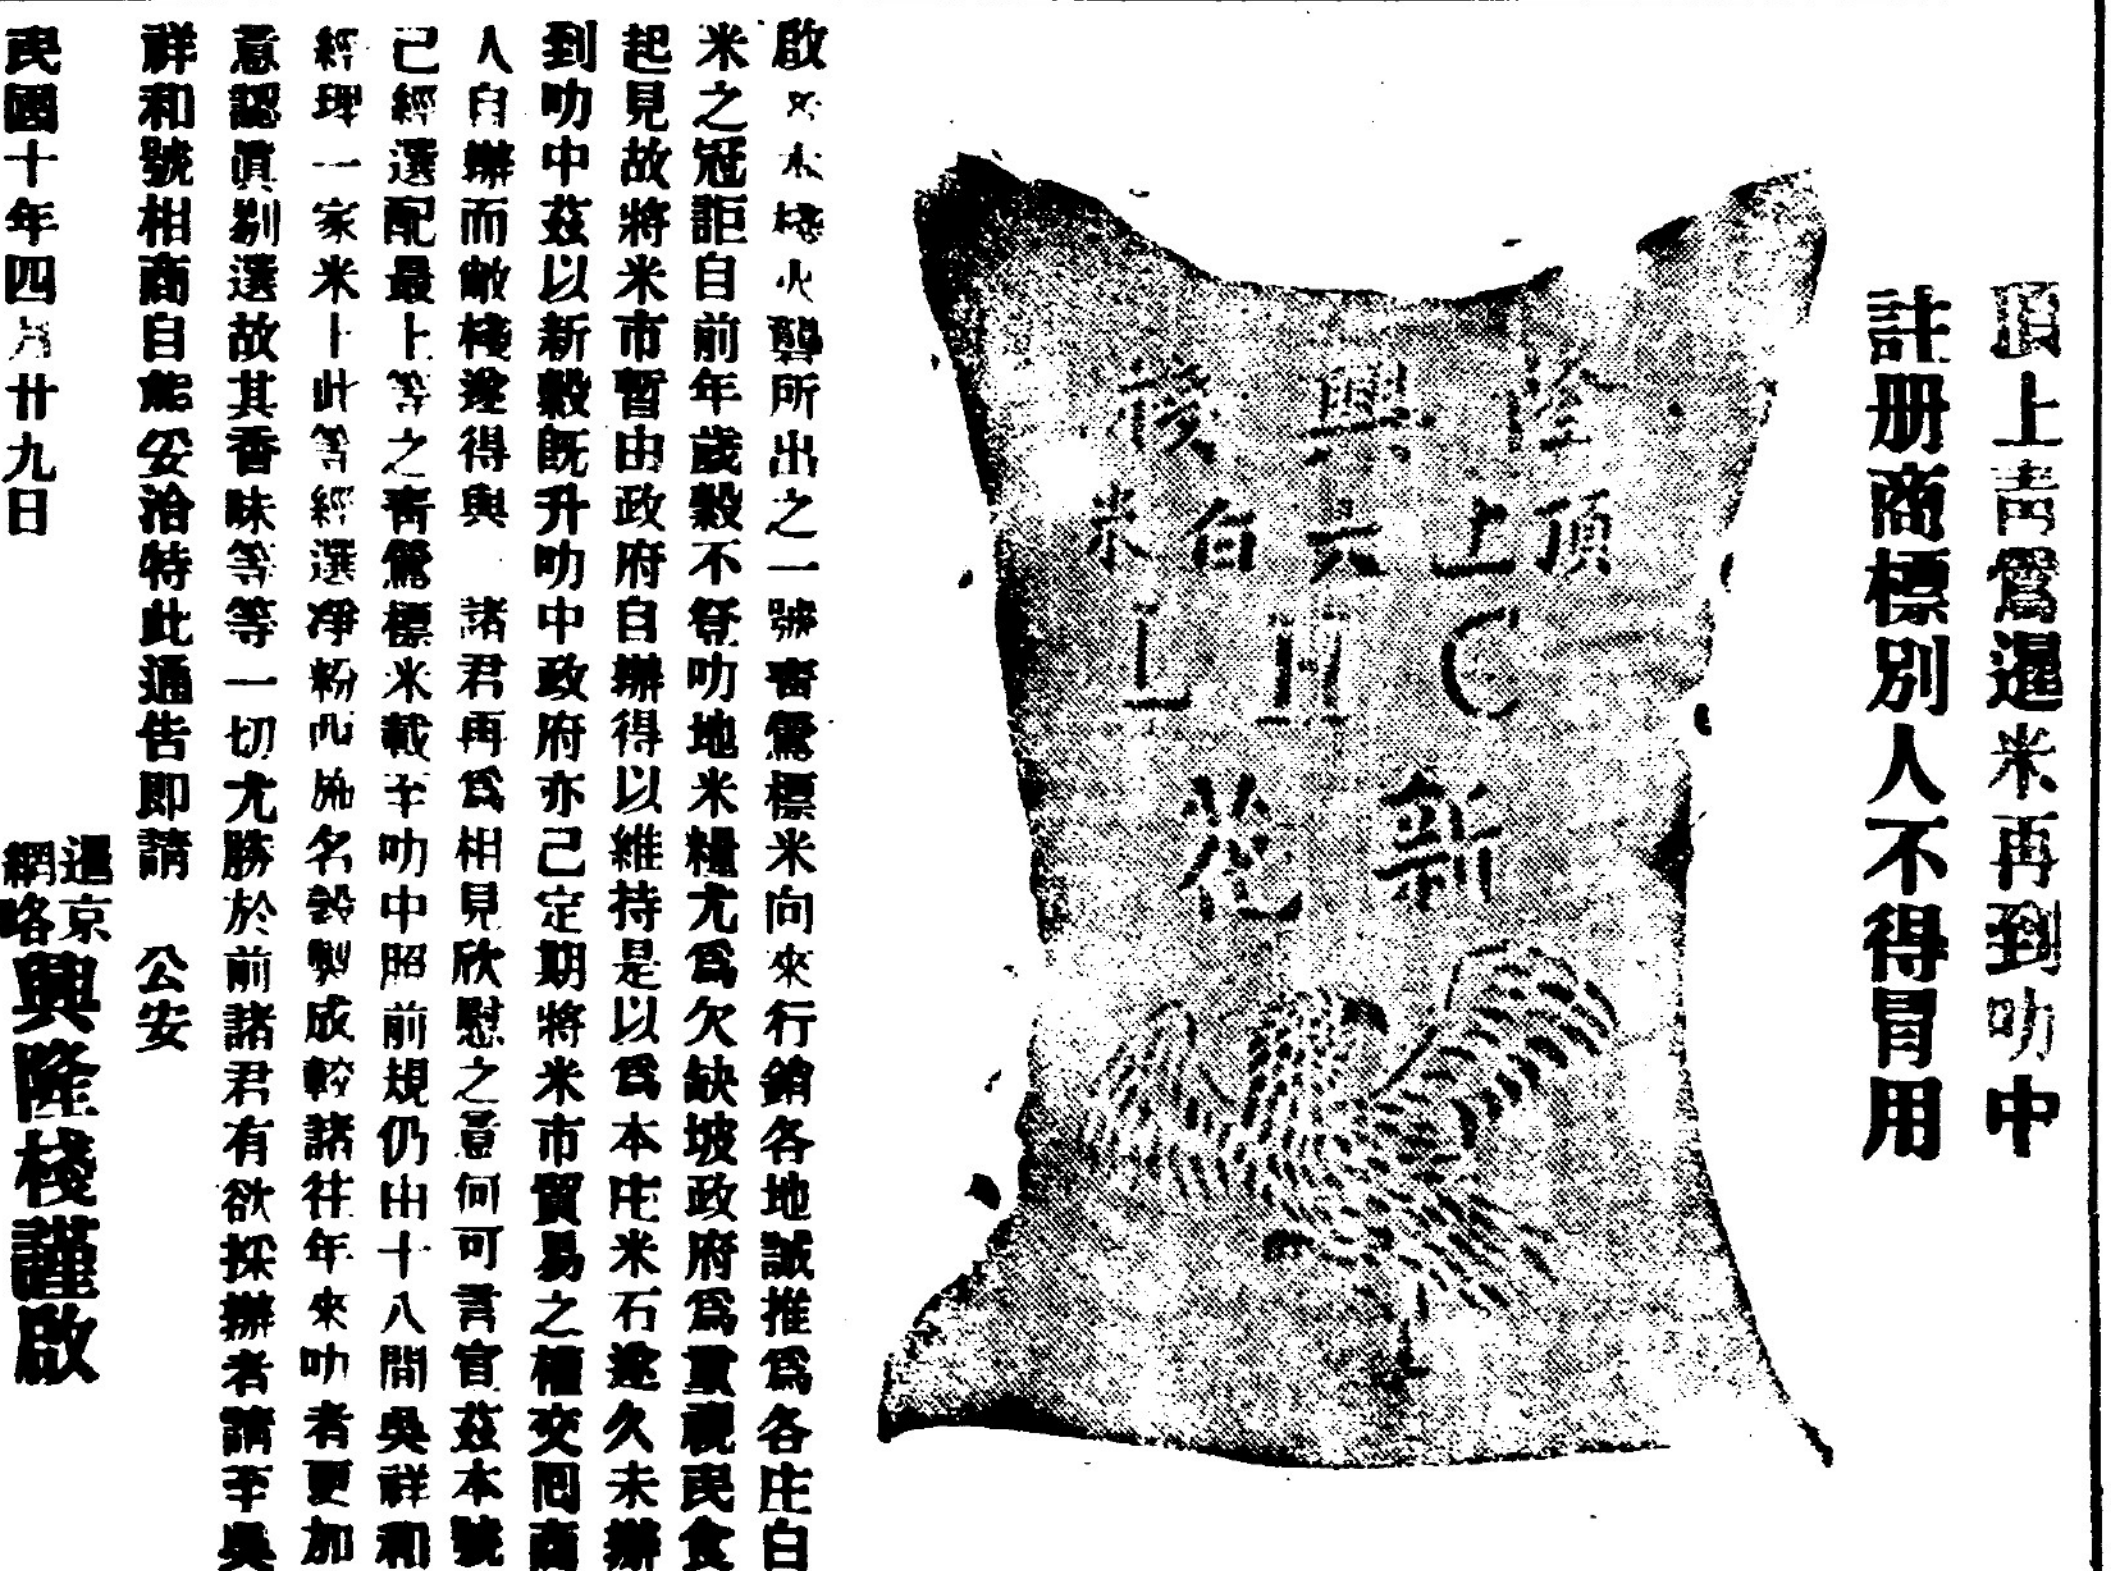 頂上青鶯暹米再到叻中
註册商標別人不得冒用
隆興棧
頂上六白米
C H L
新花
啟本棧火礱所出之一號青鶯標米向來行銷各地誠推爲各庄白
米之冠詎自前年歲穀不登叻地米糧尤爲欠缺坡政府爲重視民食
起見故將米市暫由政府自辦得以維持是以爲本庄米石遂久未辦
到叻中茲以新穀既升叻中政府亦己定期將米市貿易之權交囘商
人自辦而敝棧遂得與 諸君再爲相見欣慰之意何可言宣茲本號
己經選配最上等之青鶯標米載至叻中照前規仍由十八間吳祥和
經理一家米卜此等經選凈粉而施名穀製成較諸往年來叻者更加
意認眞剔選故其香味等等一切尤勝於前諸君有欲採辦者請至吳
祥和號相商自能妥洽特此通告即請 公安
暹京
網咯
興隆棧謹啟
民國十年四月廿九日